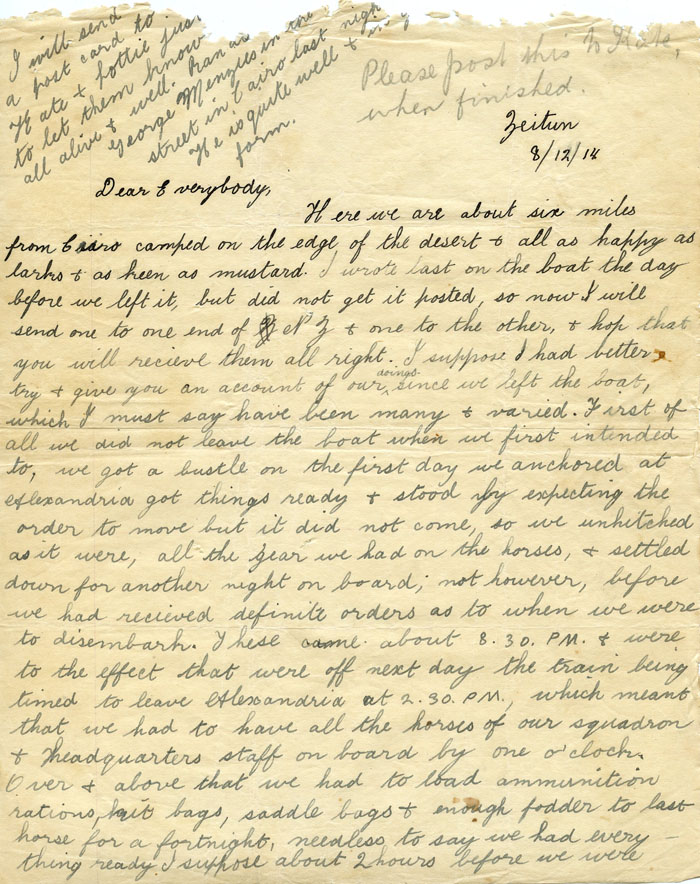 I will send
a post card to
Kate & Lottie jus
to let them know
all alive & well. Ran ac
George Menzies in one
street in Cairo last nigh
He is quite well & in
form.
Please post this to Kate,
when finished.
Zeitun
8/12/14
Dear Everybody,
Here we are about six miles
from Cairo camped on the edge of the desert & all as happy as
larks & as keen as mustard. I wrote last on the boat the day
before we left it, but did not get it posted, so now I will
send one to one end of N Z & one to the other, & hop that
you will recieve them all right. I suppose I had better
try & give you an account of our doings since we left the boat,
which I must say have been many & varied. First of
all we did not leave the boat when we first intended
to, we got a bustle on the first day we anchored at
Alexandria got things ready & stood by expecting the
order to move but it did not come, so we unhitched
as it were, all the gear we had on the horses, & settled
down for another night on board; not however, before
we had recieved definite orders as to when we were
to disembark. These came about 8.30. P.M. & were
to the effect that were off next day the train being
timed to leave Alexandria at 2.30. P.M., which meant
that we had to have all the horses of our squadron
& headquarters staff on board by one o'clock.
Over & above that we had to load ammunition
rations, kit bags, saddle bags & enough fodder to last
horse for a fortnight, needless to say we had every-
thing ready I suppose about 2 hours before we were